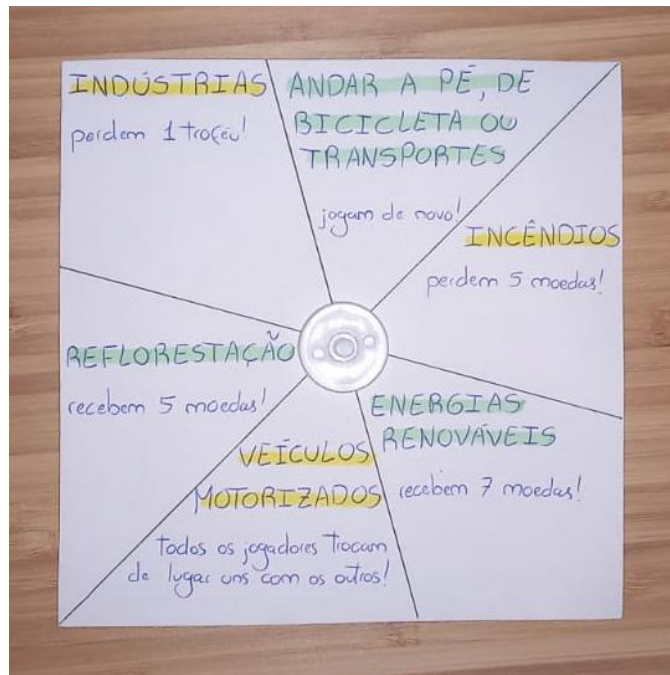 INDÚSTRIAS
perdem 1 troféu!
ANDAR A PÉ, DE
BICICLETA OU
TRANSPORTES
jogam de novo!
INCÊNDIOS
perdem 5 moedas!
REFLORESTAÇÃO
recebem 5 moedas!
ENERGIAS
RENOVÁVEIS
recebem 7 moedas!
VEÍCULOS
MOTORIZADOS
todos os jogadores trocam
de lugar uns com os outros!